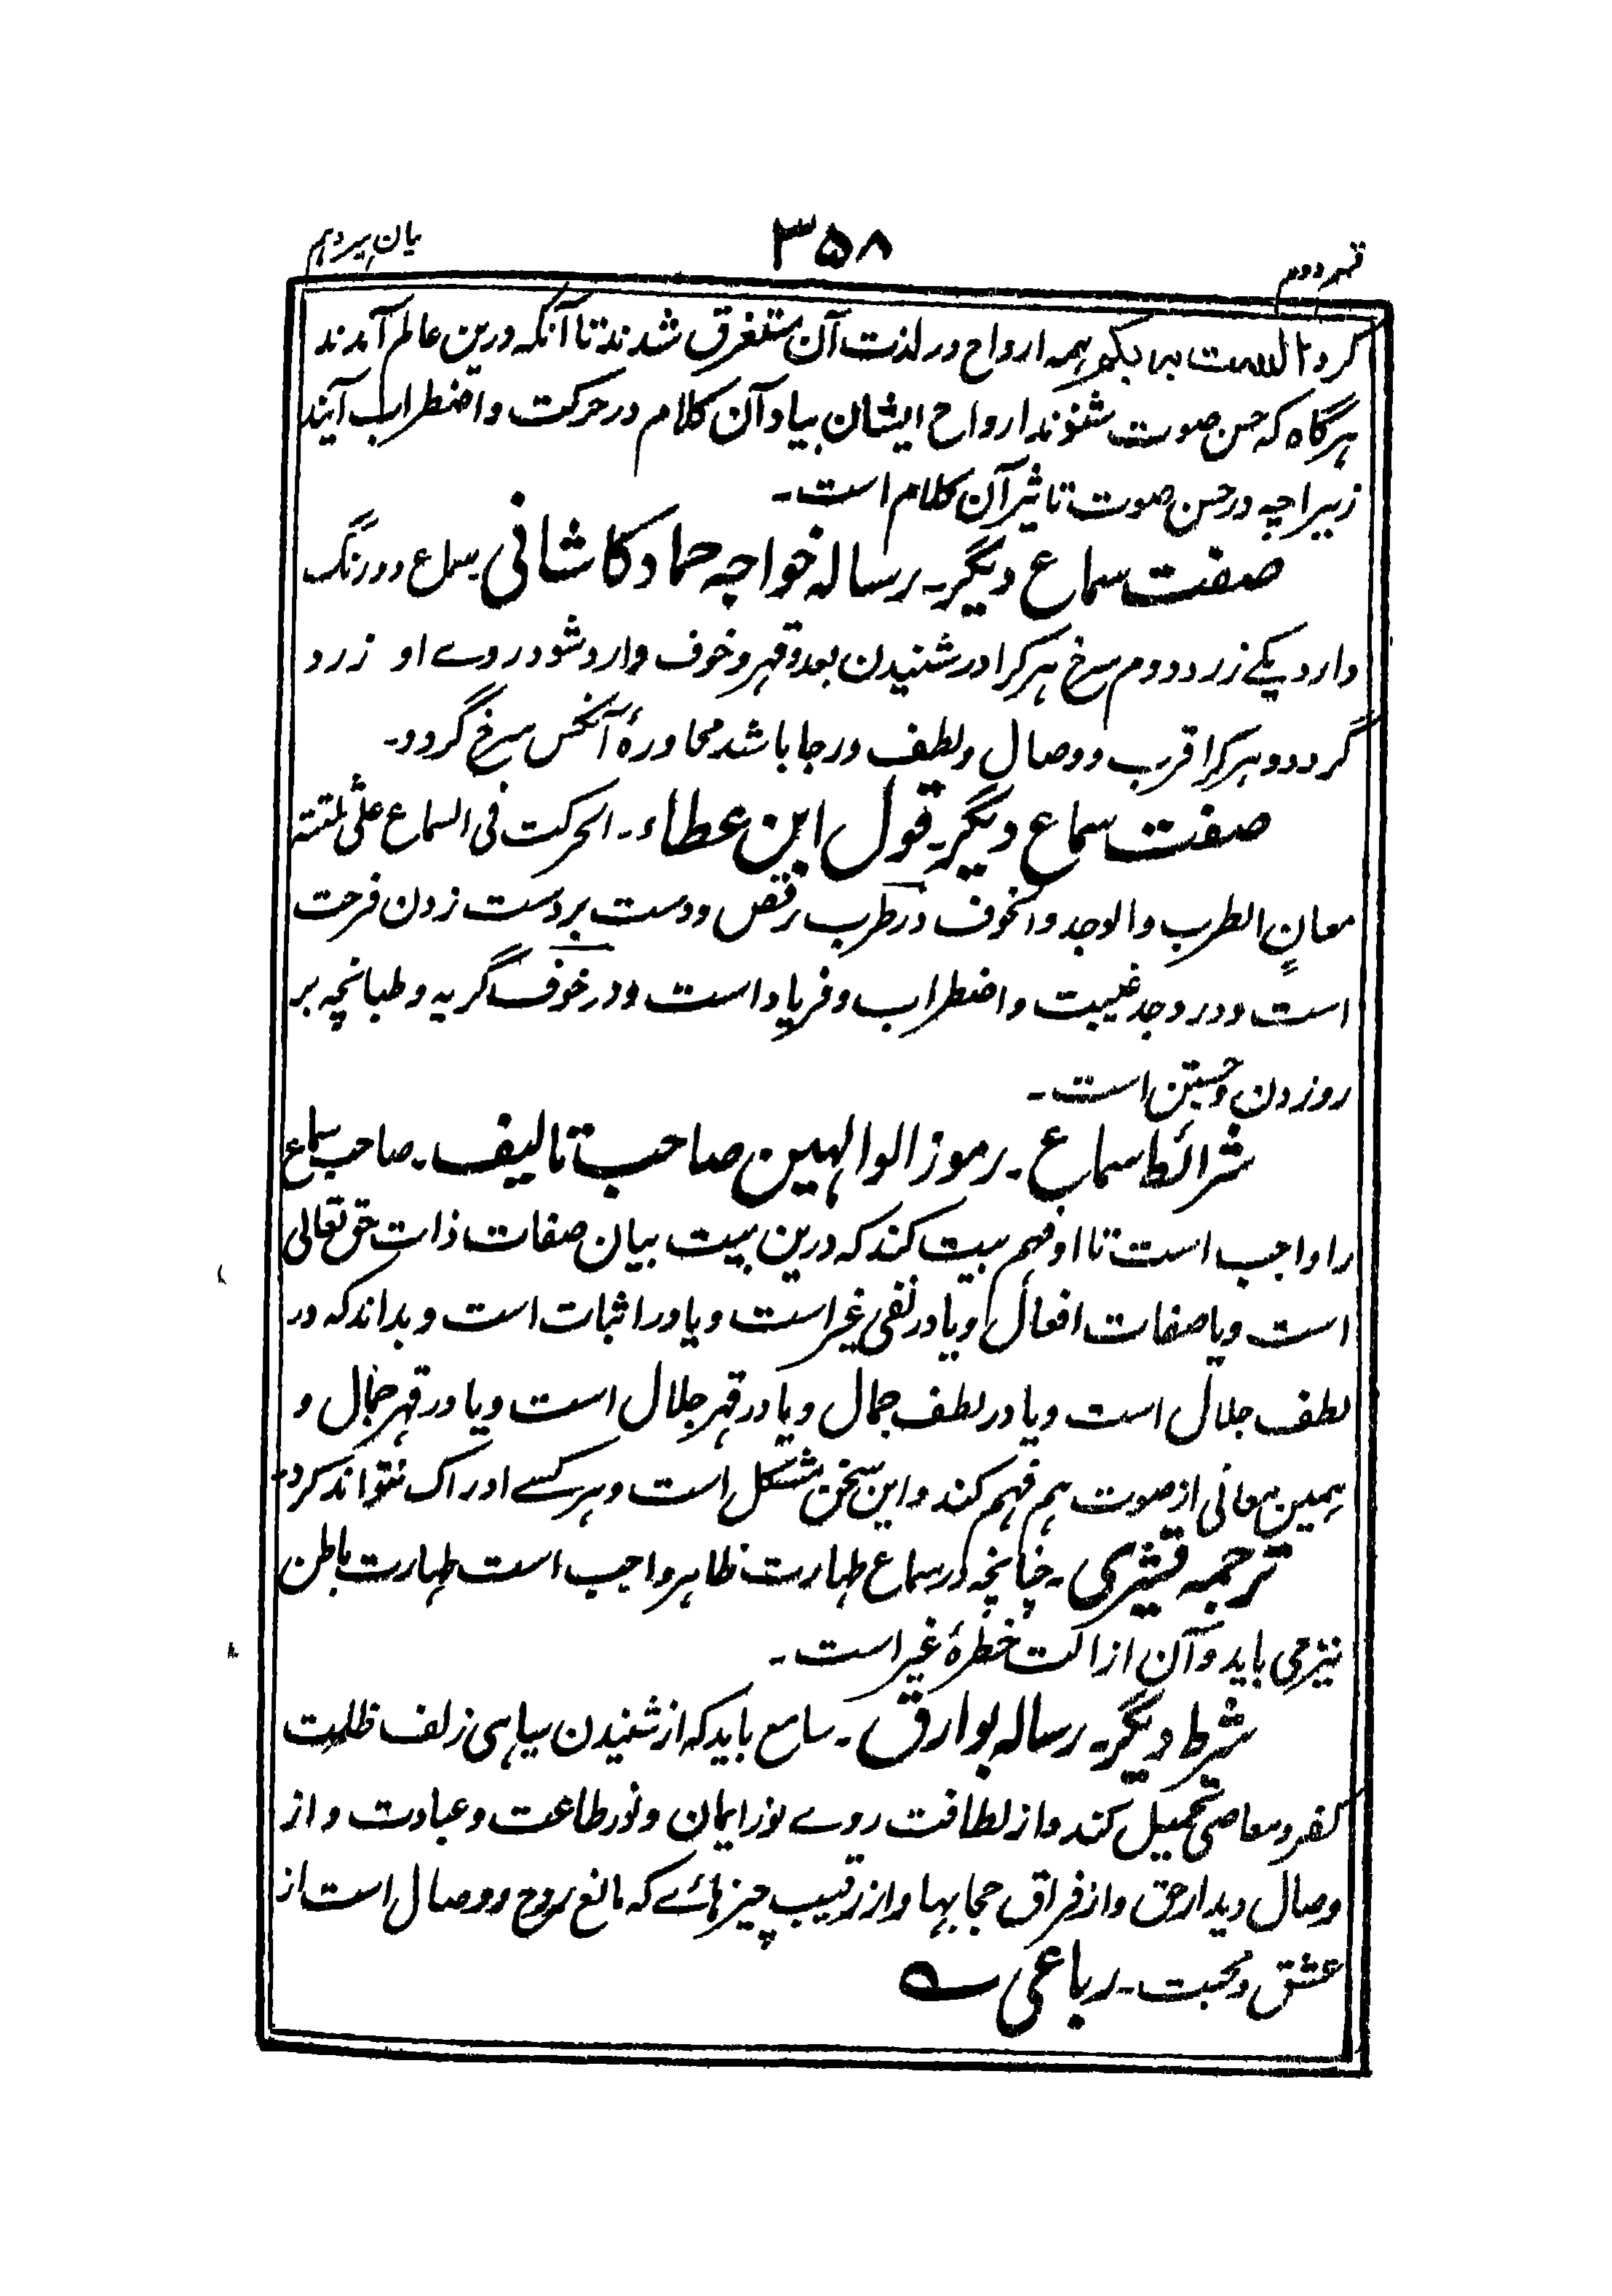 قسم دوم ۳۵۸ بیان سیزدهم
کرد الست بربکم همه ارواح در لذت آن مستغرق شدند تا آنکه درین عالم آمدند
هرگاه که حسن صوت شنوند ارواح ایشان بیاد آن کلام در حرکت و اضطراب آیند
زیراچه در حسن صوت تاثیر آن کلام است۔
صفت سماع دیگر۔ رساله خواجه حماد کاشانی سماع دو رنگ
دارد یکے زرد دوم سرخ هر کرا در شنیدن بعد و قهر و خوف وارد شود روے او زرد
گردد و هر کرا قرب و وصال و لطف و رجا باشد محاورهٔ آنکس سرخ گردد۔
صفت سماع دیگر۔ قول ابن عطاء۔ الحرکت فی السماع علی ثلثته
معانٍ الطرب والوجد والخوف در طرب رقص و دست بر دست زدن فرحت
است و در وجد غیبت و اضطراب و فریاد است و در خوف گریه و طبانچه بر
رو زدن و جستن است۔
شرائط سماع۔ رموز الوالهین صاحب تالیف۔ صاحب سماع
را واجب است تا او فهم بیت کند که درین بیت بیان صفات ذات حق تعالی
است و یا صفات افعال او یا در نفی غیر است و یا در اثبات است و بداند که در
لطف جلال است و یا در لطف جمال و یا در قهر جلال است و یا در قهر جمال و
همین معانی از صوت هم فهم کند و این سخن مشکل است و هر کسے ادراک نتواند کرد۔
ترجمه قشیری۔ چنانچه در سماع طهارت ظاهر واجب است طهارت باطن
نیز می باید و آن از اکت خطرهٔ غیر است۔
شرط دیگر۔ رساله بوارق۔ سامع باید که از شنیدن سیاهی زلف ظلمت
کفر و معاصی تحمیل کند و از لطافت روے نور ایمان و نور طاعت و عبادت و از
وصال دیدار حق و از فراق حجابها و از رقیب چیزهائے که مانع روح و وصال است از
عشق و محبت۔ رباعی ؎